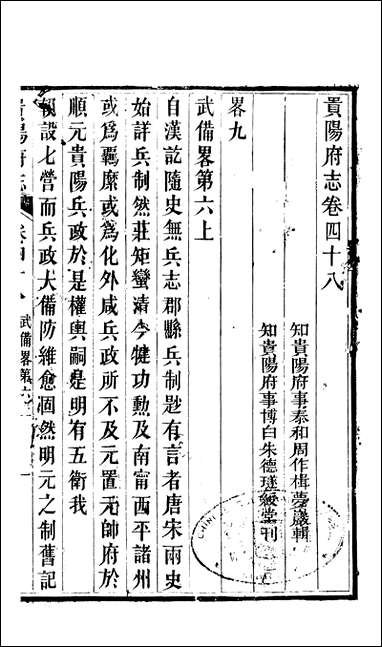 貴陽府志卷四十八
知貴陽府事泰和周作楫夢巖輯
知貴陽府事博白朱德璲綬堂刊
畧九
武備畧第六上
自漢訖隨史無兵志郡縣兵制尟有言者唐宋兩史
始詳兵制然莊矩蠻清今犍功勳及南甯西平諸州
或爲羈縻或爲化外咸兵政所不及元置元帥府於
順元貴陽兵政於是權輿嗣是明有五衛我
朝設七營而兵政大備防維愈固然明元之制舊記
貴陽府志
卷四十八
武備畧第六上
一